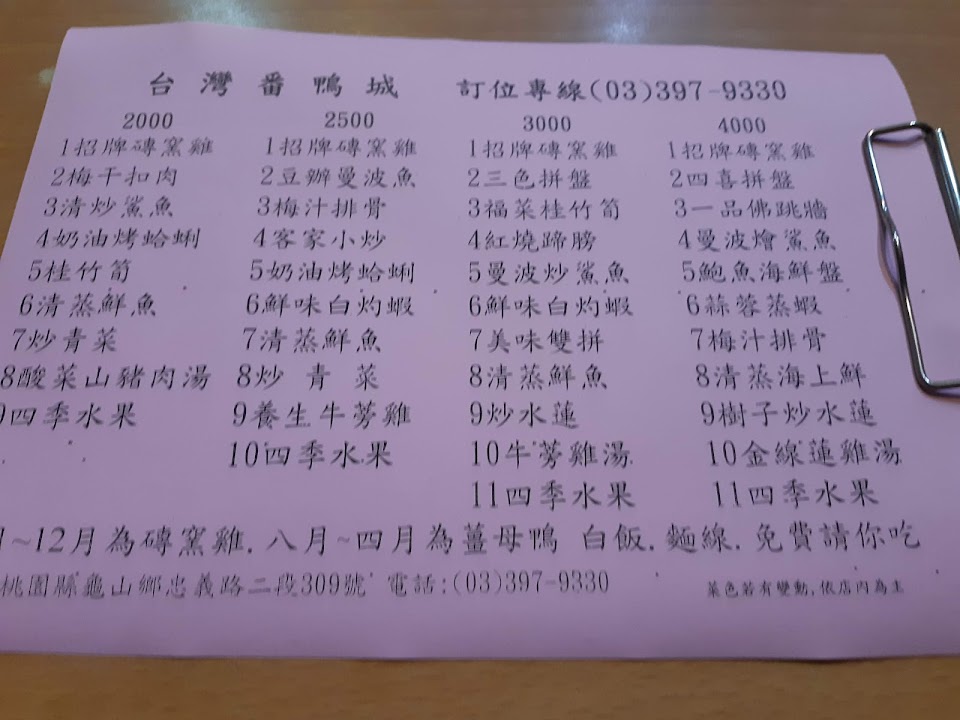 台灣番鴨城 訂位專線(03)397-9330
2000 2500 3000 4000
1招牌磚窯雞 1招牌磚窯雞 1招牌磚窯雞 1招牌磚窯雞
2梅干扣肉 2豆瓣曼波魚 2三色拼盤 2四喜拼盤
3清炒鯊魚 3梅汁排骨 3福菜桂竹筍 3一品佛跳牆
4奶油烤蛤蜊 4客家小炒 4紅燒蹄膀 4曼波燴鯊魚
5桂竹筍 5奶油烤蛤蜊 5曼波炒鯊魚 5鮑魚海鮮盤
6清蒸鮮魚 6鮮味白灼蝦 6鮮味白灼蝦 6蒜蓉蒸蝦
7炒青菜 7清蒸鮮魚 7美味雙拼 7梅汁排骨
8酸菜山豬肉湯 8炒青菜 8清蒸鮮魚 8清蒸海上鮮
9四季水果 9養生牛蒡雞 9炒水蓮 9樹子炒水蓮
10四季水果 10牛蒡雞湯 10金線蓮雞湯
11四季水果 11四季水果
月~12月為磚窯雞.八月~四月為薑母鴨 白飯.麵線.免費請你吃
桃園縣龜山鄉忠義路二段309號 電話:(03)397-9330 菜色若有變動,依店內為主